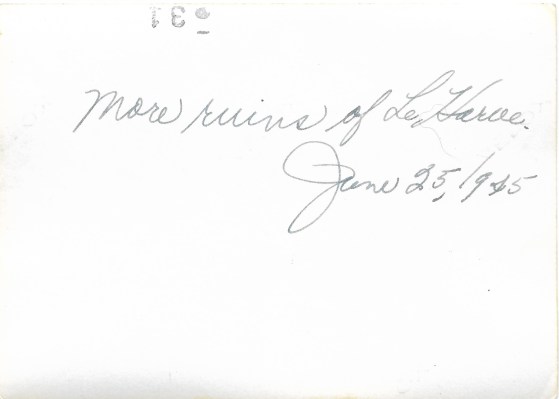 31
More ruins of Le Harve.
June 25, 1945